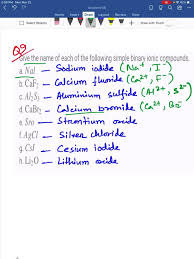 Q9
Give the name of each of the following simple binary ionic compounds.
a. NaI — Sodium iodide (Na⁺, I⁻)
b. CaF₂ — Calcium fluoride (Ca²⁺, F⁻)
c. Al₂S₃ — Aluminium sulfide (Al³⁺, S²⁻)
d. CaBr₂ — Calcium bromide (Ca²⁺, Br
e. SrO — Strontium oxide
f. AgCl — Silver chloride
g. CsI — Cesium iodide
h. Li₂O — Lithium oxide